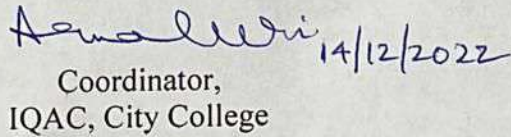 14/12/2022
Coordinator,
IQAC, City College